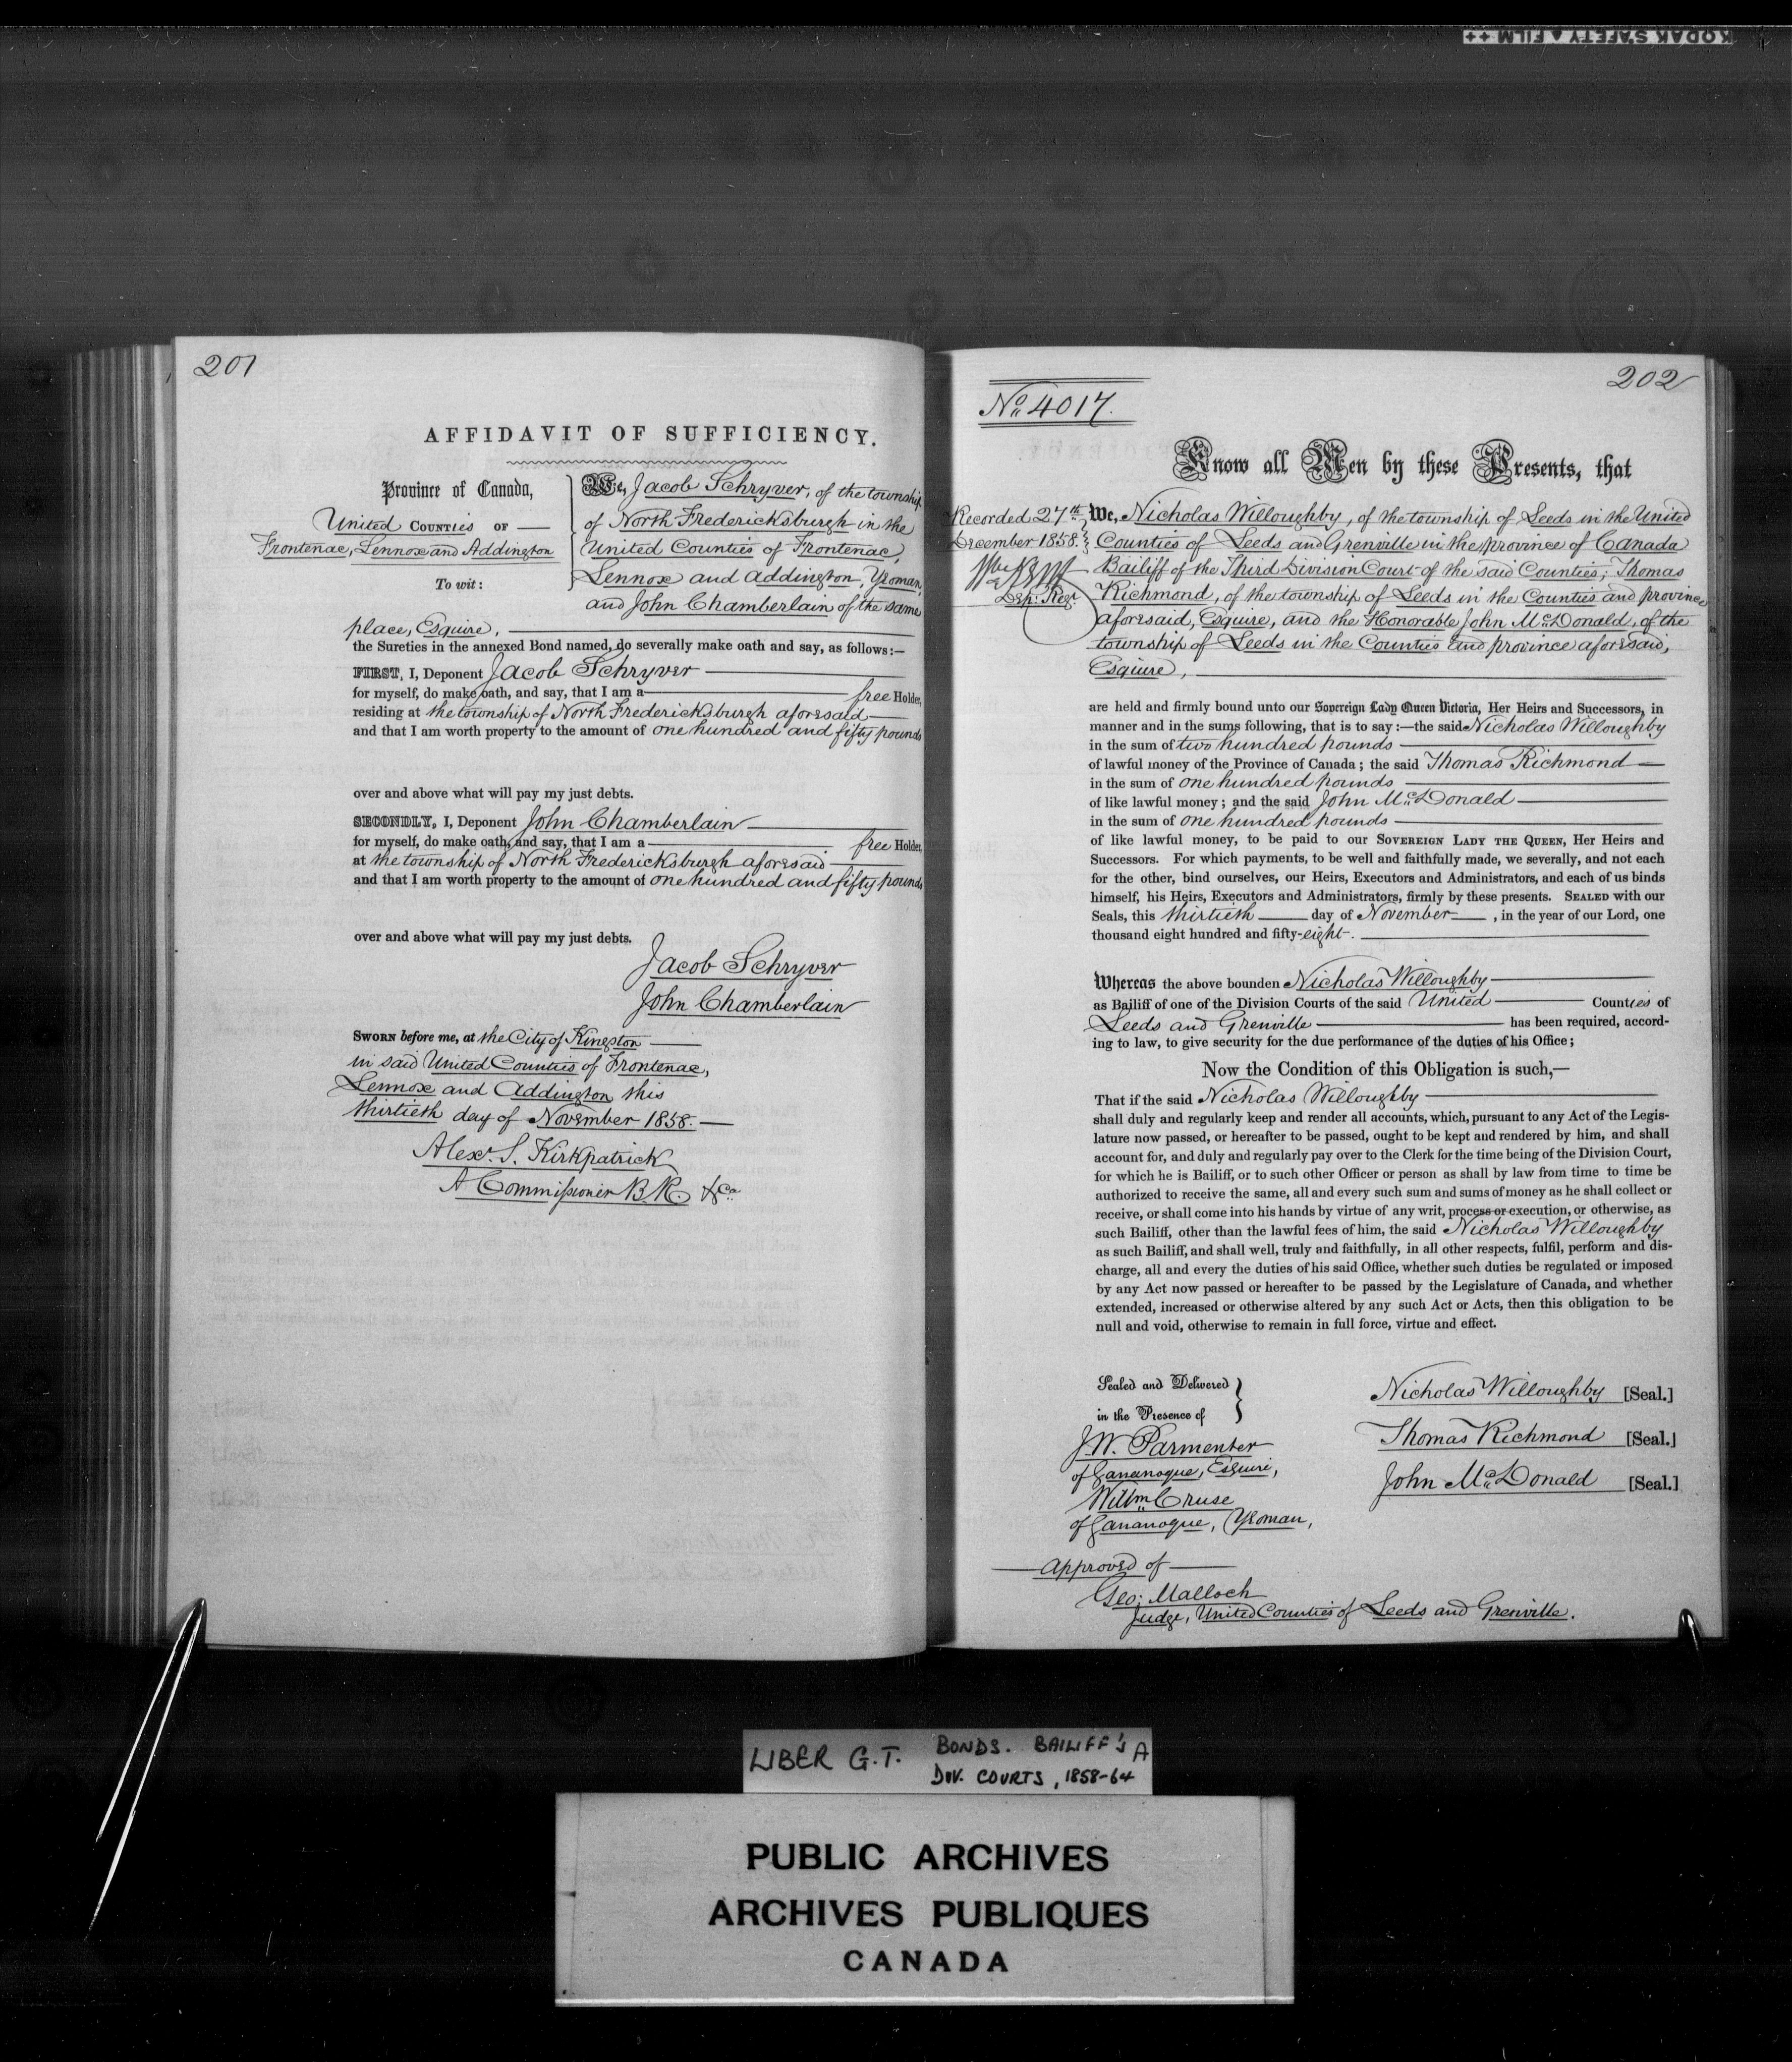 KODAK SAFETY ▲ FILM ++
201
AFFIDAVIT OF SUFFICIENCY.
Province of Canada,
United COUNTies OF
Frontenac, Lennox and Addington
To wit:
We, Jacob Schryver, of the township
of North Fredericksburgh in the
United Counties of Frontenac,
Lennox and Addington, Yeoman,
and John Chamberlain of the same
place, Esquire,
the Sureties in the annexed Bond named, do severally make oath and say, as follows:—
FIRST, I, Deponent Jacob Schryver
for myself, do make oath, and say, that I am a free Holder,
residing at the township of North Fredericksburgh aforesaid
and that I am worth property to the amount of one hundred and fifty pounds
over and above what will pay my just debts.
SECONDLY, I, Deponent John Chamberlain
for myself, do make oath, and say, that I am a free Holder,
at the township of North Fredericksburgh aforesaid
and that I am worth property to the amount of one hundred and fifty pounds
over and above what will pay my just debts.
Jacob Schryver
John Chamberlain
SWORN before me, at the City of Kingston
in said United Counties of Frontenac,
Lennox and Addington this
thirtieth day of November 1858.
Alexr. S. Kirkpatrick
A Commissioner B.R. &ca
202
No. 4017.
Know all Men by these Presents, that
Recorded 27th
December 1858.
Dep: Regr.
We, Nicholas Willoughby, of the township of Leeds in the United
Counties of Leeds and Grenville in the province of Canada
Bailiff of the Third Division Court of the said Counties; Thomas
Richmond, of the township of Leeds in the Counties and province
aforesaid, Esquire, and the Honorable John McDonald, of the
township of Leeds in the Counties and province aforesaid,
Esquire,
are held and firmly bound unto our Sovereign Lady Queen Victoria, Her Heirs and Successors, in
manner and in the sums following, that is to say:—the said Nicholas Willoughby
in the sum of two hundred pounds
of lawful money of the Province of Canada; the said Thomas Richmond
in the sum of one hundred pounds
of like lawful money; and the said John McDonald
in the sum of one hundred pounds
of like lawful money, to be paid to our SOVEREIGN LADY THE QUEEN, Her Heirs and
Successors. For which payments, to be well and faithfully made, we severally, and not each
for the other, bind ourselves, our Heirs, Executors and Administrators, and each of us binds
himself, his Heirs, Executors and Administrators, firmly by these presents. SEALED with our
Seals, this thirtieth day of November, in the year of our Lord, one
thousand eight hundred and fifty-eight.
Whereas the above bounden Nicholas Willoughby
as Bailiff of one of the Division Courts of the said United Counties of
Leeds and Grenville has been required, accord-
ing to law, to give security for the due performance of the duties of his Office;
Now the Condition of this Obligation is such,—
That if the said Nicholas Willoughby
shall duly and regularly keep and render all accounts, which, pursuant to any Act of the Legis-
lature now passed, or hereafter to be passed, ought to be kept and rendered by him, and shall
account for, and duly and regularly pay over to the Clerk for the time being of the Division Court,
for which he is Bailiff, or to such other Officer or person as shall by law from time to time be
authorized to receive the same, all and every such sum and sums of money as he shall collect or
receive, or shall come into his hands by virtue of any writ, process or execution, or otherwise, as
such Bailiff, other than the lawful fees of him, the said Nicholas Willoughby
as such Bailiff, and shall well, truly and faithfully, in all other respects, fulfil, perform and dis-
charge, all and every the duties of his said Office, whether such duties be regulated or imposed
by any Act now passed or hereafter to be passed by the Legislature of Canada, and whether
extended, increased or otherwise altered by any such Act or Acts, then this obligation to be
null and void, otherwise to remain in full force, virtue and effect.
Sealed and Delivered
in the Presence of
J. W. Parmenter
of Gananoque, Esquire,
Willm Cruse
of Gananoque, Yeoman,
Nicholas Willoughby [Seal.]
Thomas Richmond [Seal.]
John McDonald [Seal.]
Approved of
Geo: Malloch
Judge, United Counties of Leeds and Grenville.
LIBER G.T. BONDS. BAILIFF'S A
DIV. COURTS, 1858-64
PUBLIC ARCHIVES
ARCHIVES PUBLIQUES
CANADA